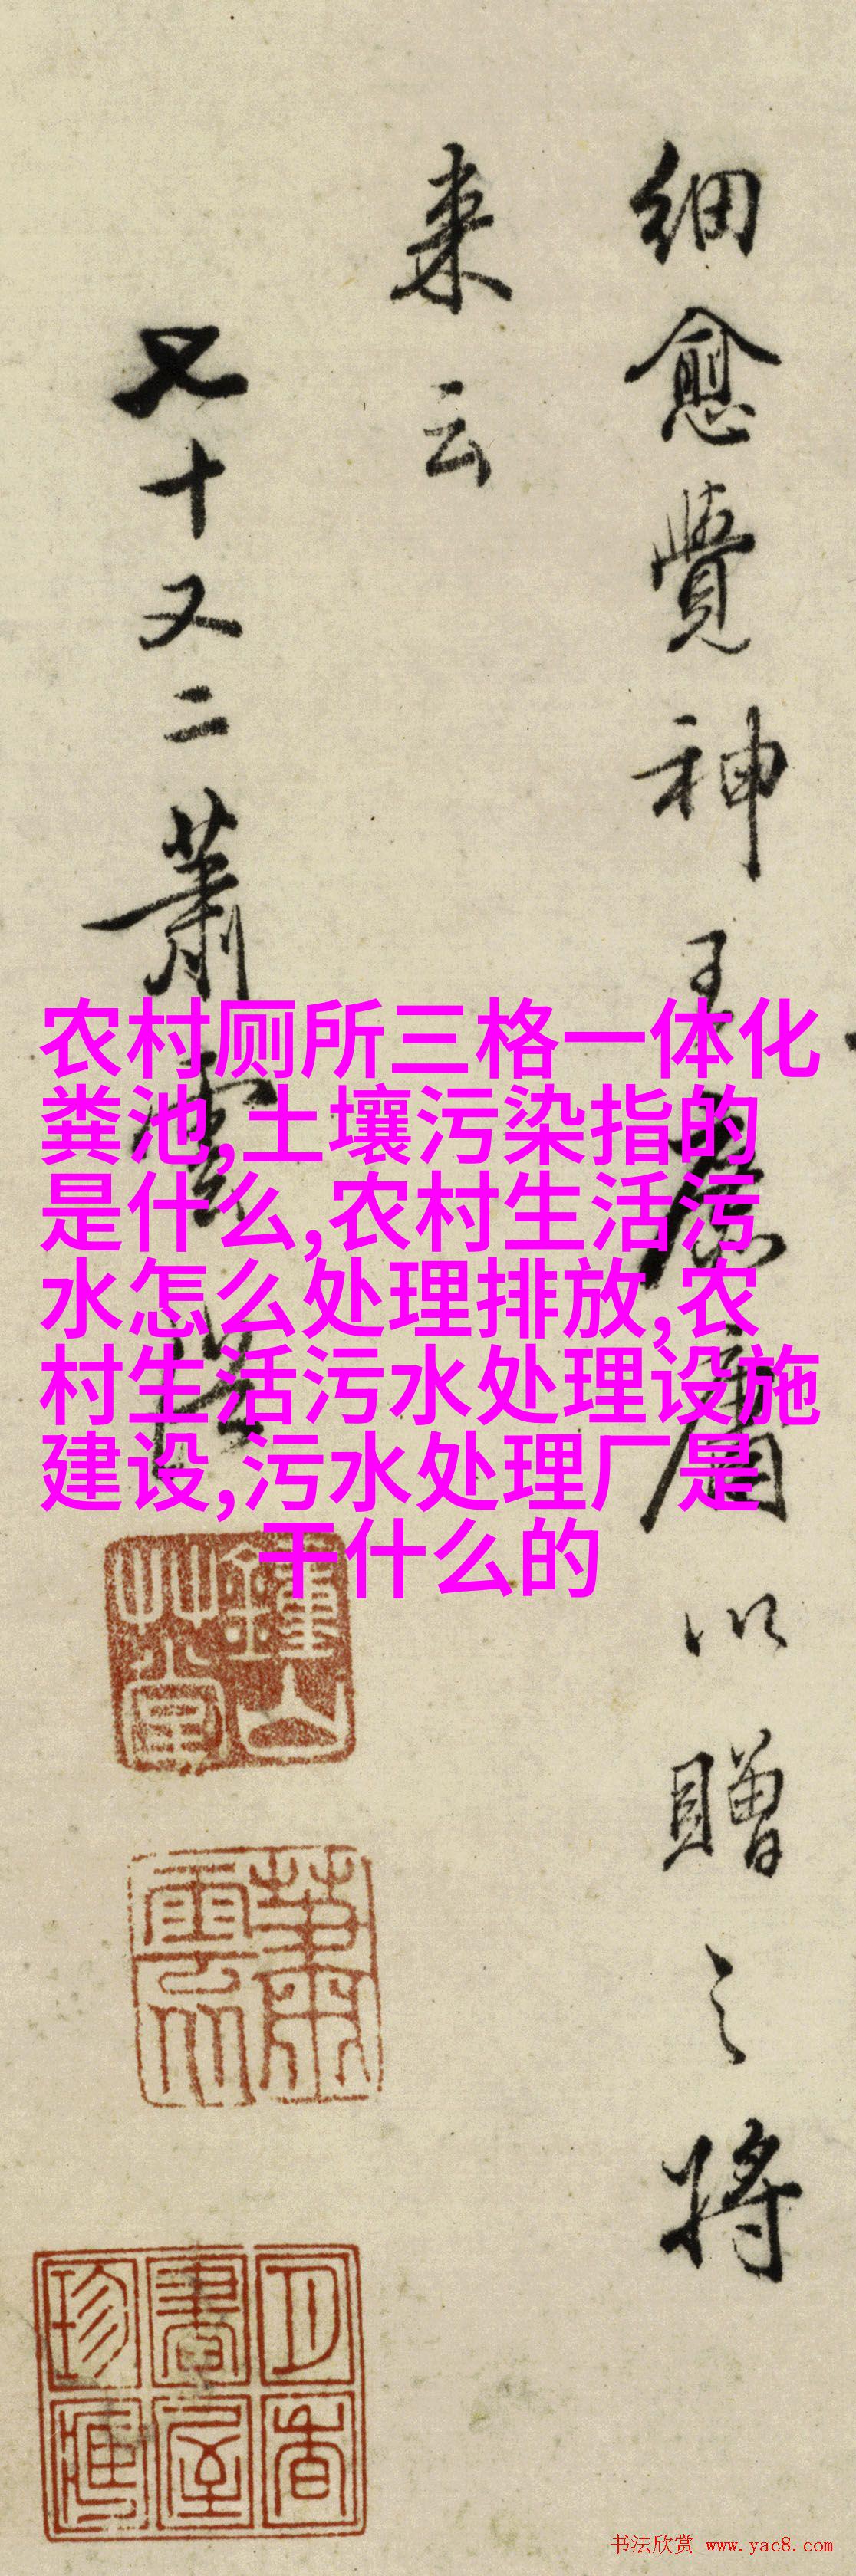 细愈覺神王
庸以贈之將
来云
七十又二萧雲
农村厕所三格一体化
粪池,土壤污染指的
是什么,农村生活污
水怎么处理排放,农
村生活污水处理设施
建设,污水处理厂是
干什么的
鍾山
艸堂
萧
雲從
書屋
珍
书法欣赏 www.yac8.com